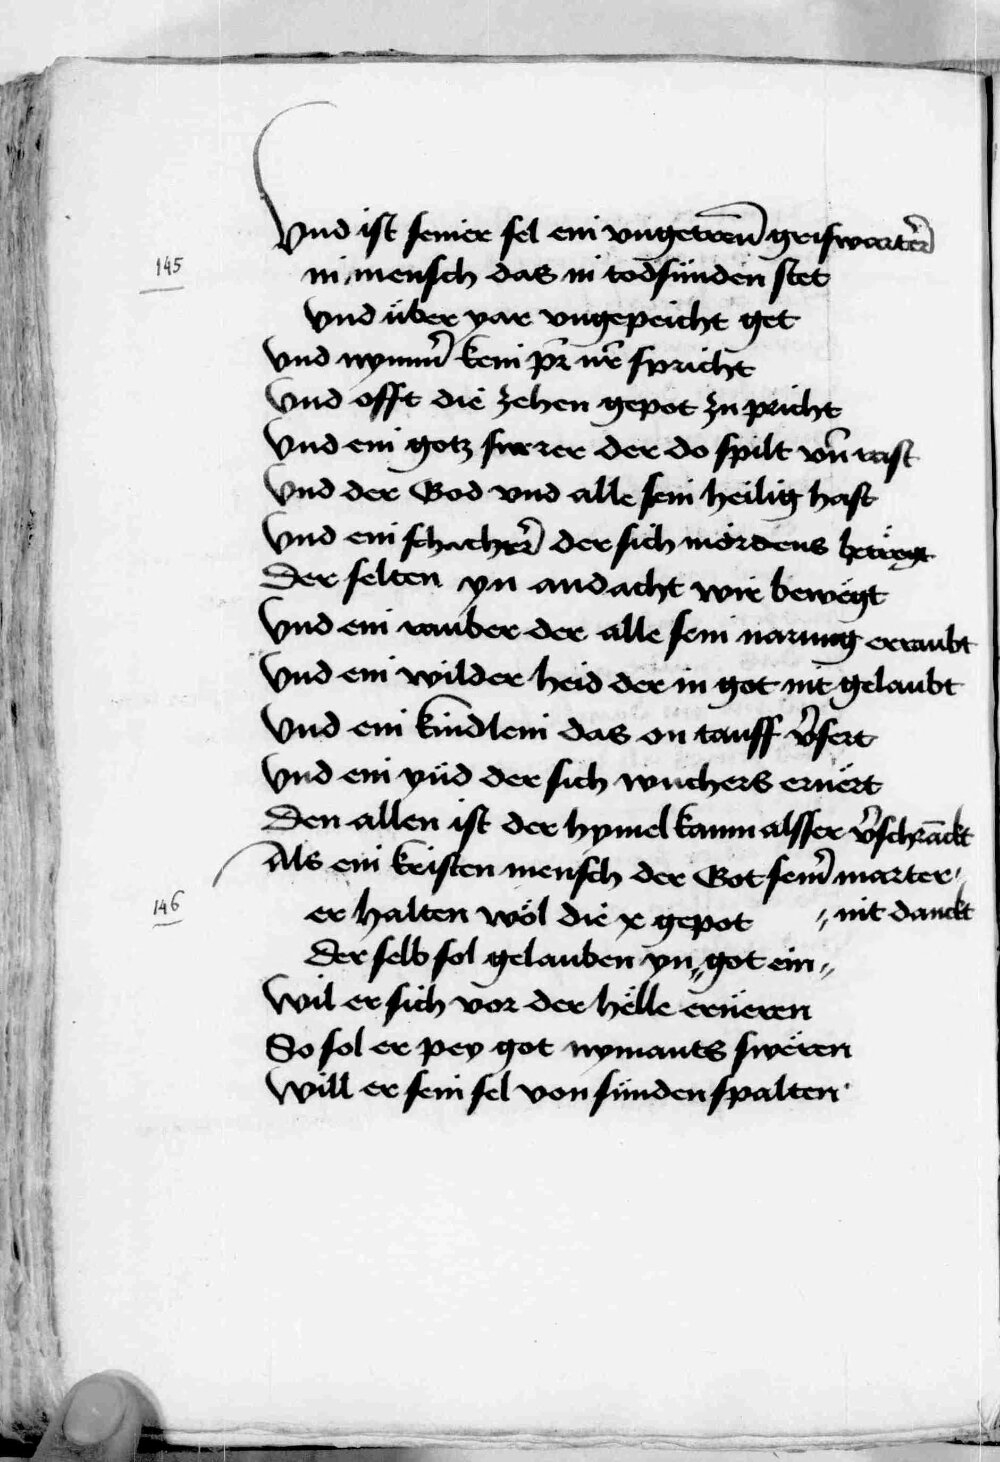 Vnd ist seiner sel ein vngetreẅ grißwarterͥ
145
in mensch das in todsünden stet
Vnd über yar vngepeicht get
Vnd nym̄er kein pr̄ nr̄ spricht
Vnd offt die zehen gepot zu pricht
Vnd ein gotz swerer der do spilt vn̄ rast
Vnd der God vnd alle sein heilig hast
Vnd ein schacher der sich mördens betregt
Der selten yn andacht wir bewegt
Vnd ein rauber der alle sein narung erraubt
Vnd ein wilder heid der in got nit gelaubt
Vnd ein kindlein das on tauff v̄fert
Vnd ein yüd der sich wuchers ernert
Den allen ist der hymel kaum alsser v̄schrāckt
Als ein kristen mensch der Got seinr̄ marter //
146
er halten wöl die x gepot // nit danckt
Der selb sol gelauben yn // got ein //
Wil er sich vor der helle erneren
So sol er pey got nymants sweren
Will er sein sel von sünden spalten